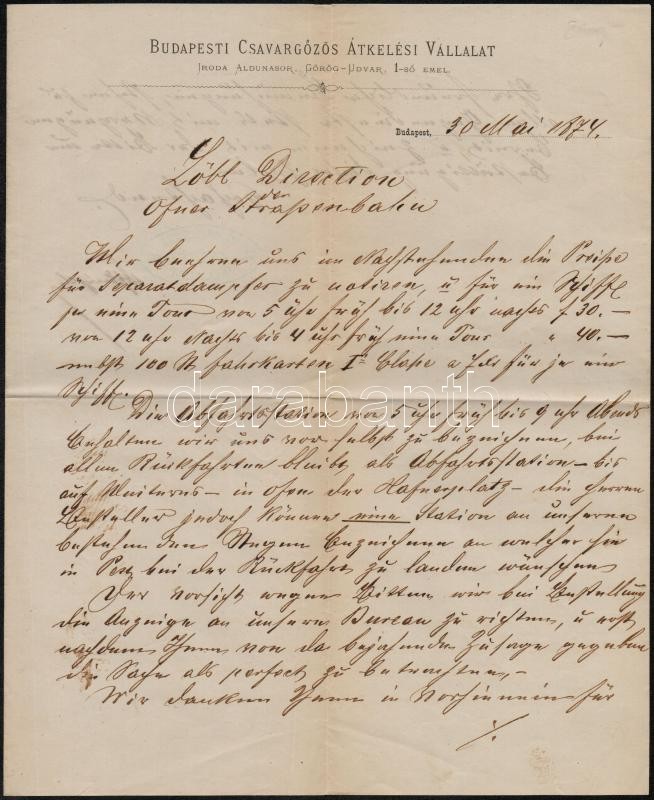 BUDAPESTI CSAVARGŐZÖS ÁTKELÉSI VÁLLALAT
IRODA ALDUNASOR, GÖRÖG-UDVAR, 1-SŐ EMEL.
Budapest, 30 Mai 1874.
Löbl Direction
der
Ofner Straßenbahn
Wir beehren uns im Nachstehenden die Preise
für Separatdampfer zu notiren, u für ein Schiff
per eine Tour von 5 uhr früh bis 12 uhr nachts f 30.—
von 12 uhr Nachts bis 4 uhr früh eine Tour " 40.—
nebst 100 St fahrkarten I Classe a 7 für je ein
Schiff.
Die Abfahrtsstation von 5 uhr früh bis 9 uhr Abends
behalten wir uns vor selbst zu bezeichnen, bei
allen Rückfahrten bleibt als Abfahrtsstation – bis
auf Weiteres – in Ofen der Hafnerplatz – die Herren
Besteller jedoch können eine Station an unseren
bestehenden Stegen bezeichnen an welcher sie
in Pest bei der Rückfahrt zu landen wünschen
Der Vorsicht wegen bitten wir bei Bestellung
die Anzeige an unsere Bureau zu richten, u erst
nachdem Ihnen von da bejahende Zusage gegeben
die Sache als perfect zu betrachten,–
Wir danken Ihnen in Vorhinein für
./.
darabanth